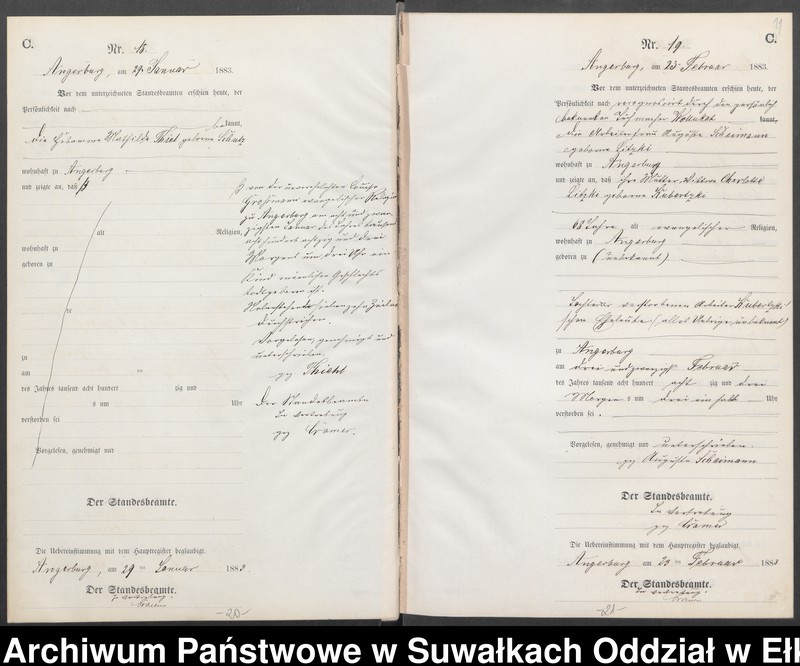 C.
Nr. 18.
Angerburg, am 29. Januar 1883.
Vor dem unterzeichneten Standesbeamten erschien heute, der
Persönlichkeit nach
bekannt,
die Hebamme Mathilde Thiel geborene
wohnhaft zu Angerburg
und zeigte an, daß
von der unverehelichten Louise
Großmann evangelischer Religion
zu Angerburg am acht und zwan
zigsten Januar des Jahres tausend
acht hundert achtzig und drei
Morgens um drei Uhr ein
Kind männlichen Geschlechts
todtgeboren sei.
Vorstehende siebenzehn Zeilen
durchstrichen.
Vorgelesen, genehmigt und
unterschrieben
gez. Thiel
Der Standesbeamte
In Vertretung
gez. Cramer.
alt Religion,
wohnhaft zu
geboren zu
zu
am
des Jahres tausend acht hundert zig und
um Uhr
verstorben sei
Vorgelesen, genehmigt und
Der Standesbeamte.
Die Uebereinstimmung mit dem Hauptregister beglaubigt.
Angerburg, am 29 ten Januar 1883
Der Standesbeamte.
In Vertretung.
Cramer
-20-
19
Nr. 19. C.
Angerburg, am 23. Februar 1883.
Vor dem unterzeichneten Standesbeamten erschien heute, der
Persönlichkeit nach recognoscirt durch den persönlich
bekannten Tischmacher kannt,
die Arbeiterfrau Auguste Scheimann
geborene Litzki
wohnhaft zu Angerburg
und zeigte an, daß ihre Mutter, Wittwe Charlotte
Litzki geborene Kubertzki
68 Jahre alt evangelischer Religion,
wohnhaft zu Angerburg
geboren zu (unbekannt)
Tochter der verstorbenen Arbeiter Kubertzki'
schen Eheleute (alles Uebrige unbekannt)
zu Angerburg
am drei und zwanzigsten Februar
des Jahres tausend acht hundert acht zig und drei
Morgens um drei ein halb Uhr
verstorben sei.
Vorgelesen, genehmigt und unterschrieben
gez. Auguste Scheimann
Der Standesbeamte.
In Vertretung
gez. Cramer
Die Uebereinstimmung mit dem Hauptregister beglaubigt.
Angerburg, am 23 ten Februar 1883
Der Standesbeamte.
In Vertretung.
Cramer
-21-
Archiwum Państwowe w Suwałkach Oddział w Eł